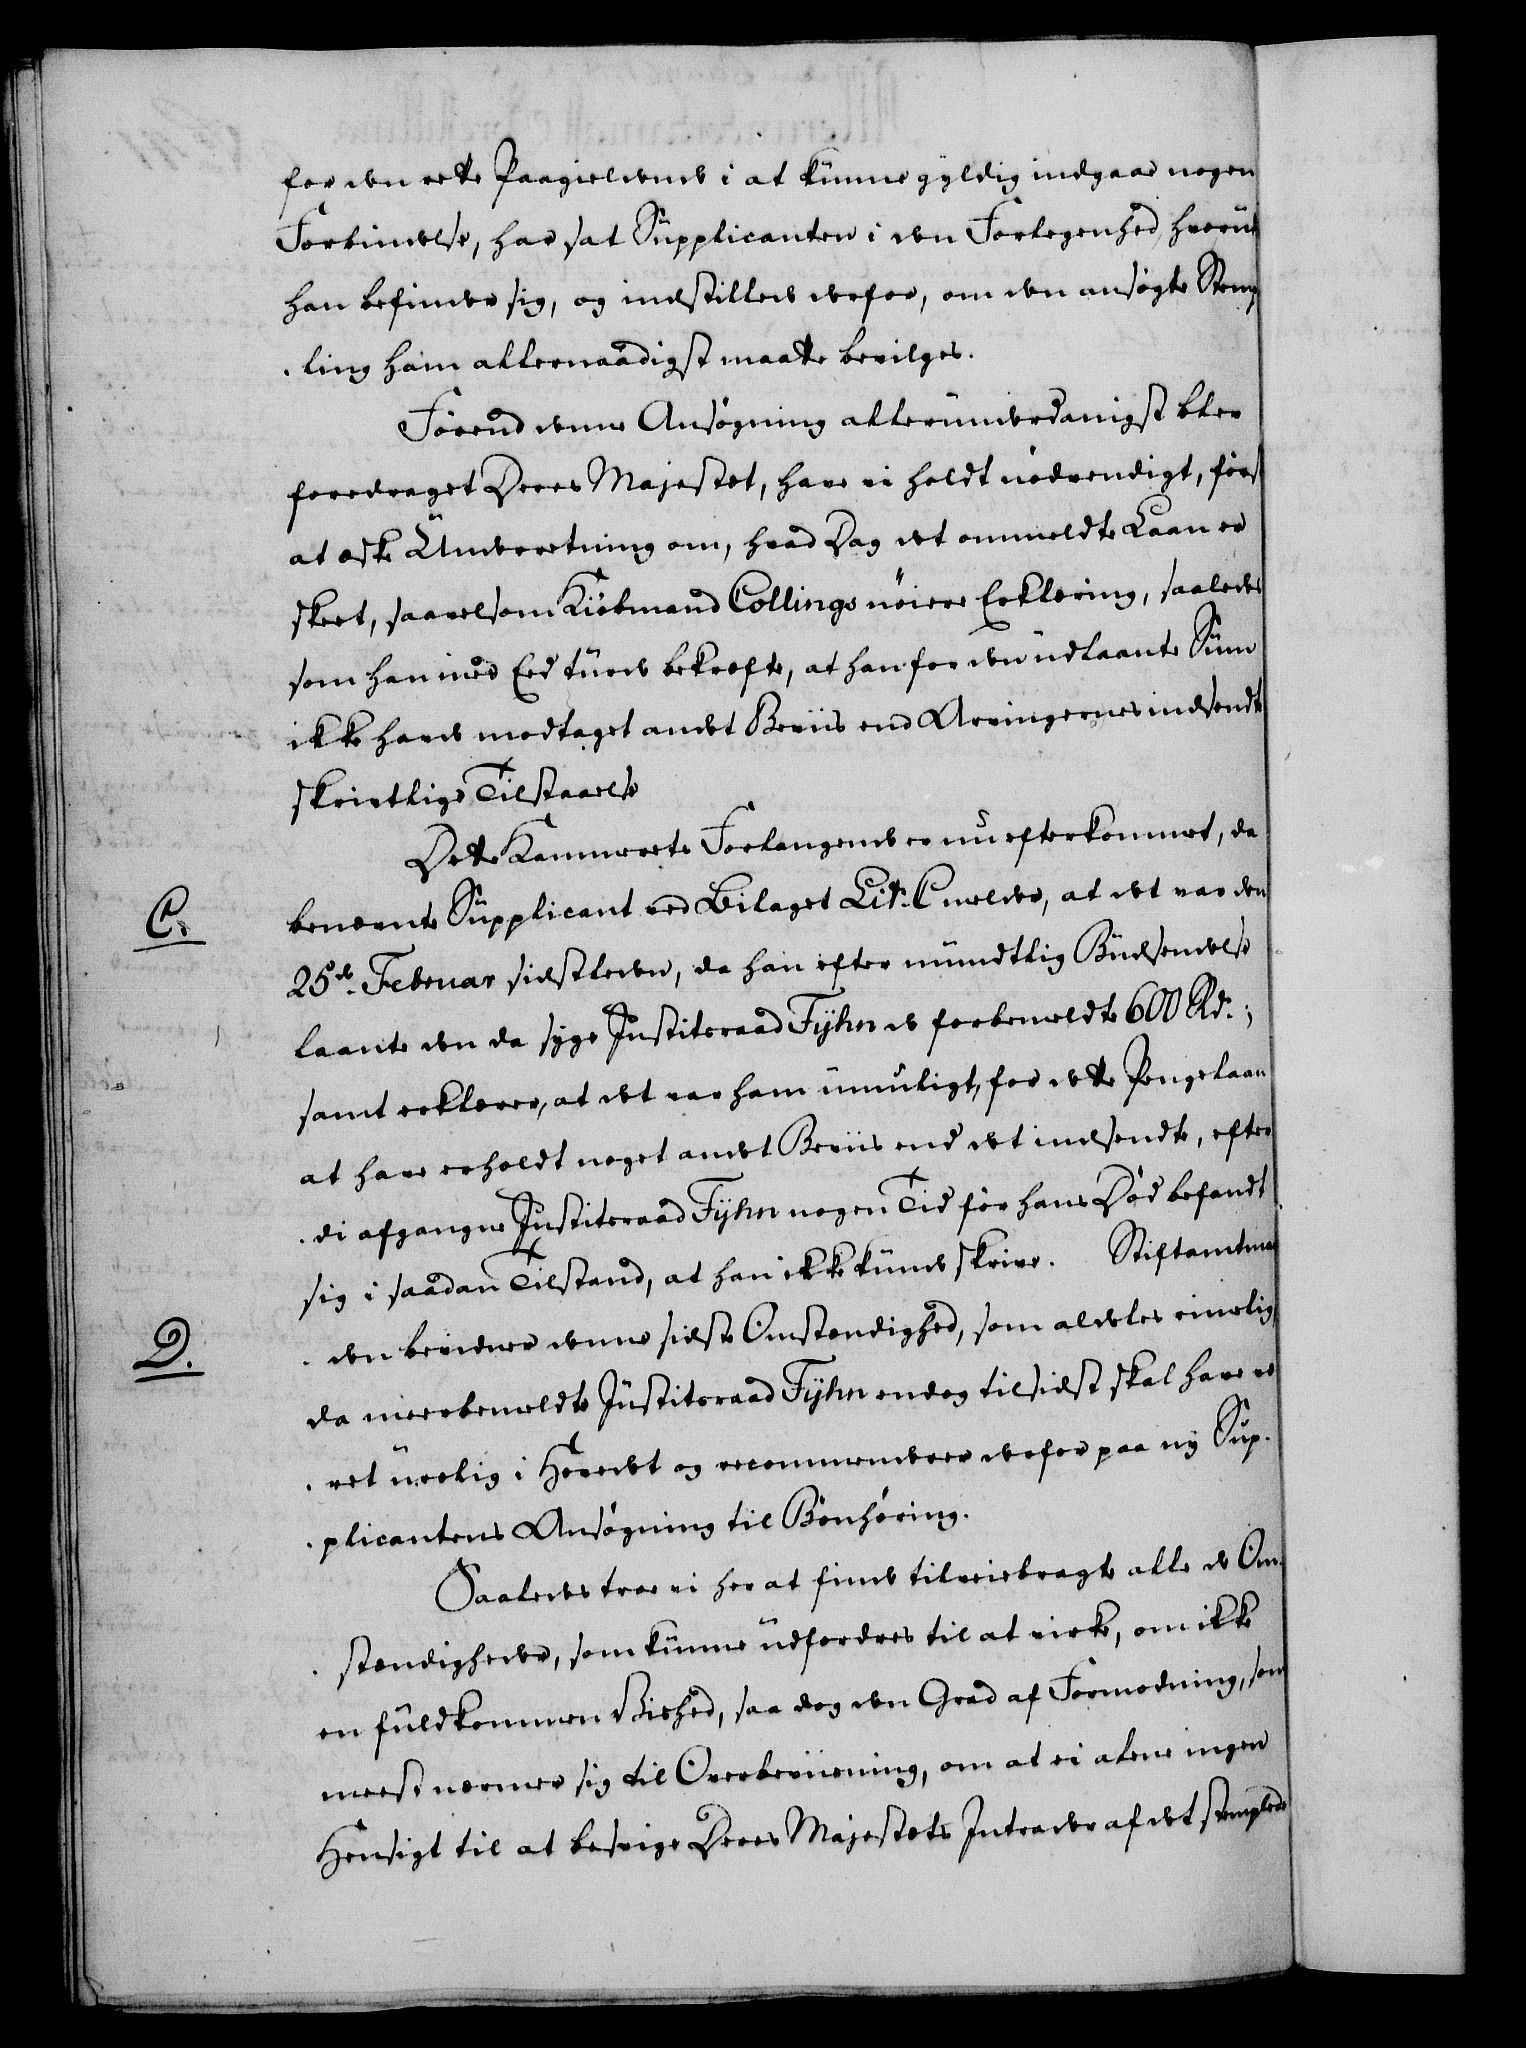 for den rette Paagieldende i at kunne gyldig indgaae nogen
Forbindelse, har sat Supplicanten i den Forlegenhed, hvorud
han befinder sig, og indstiller derfor, om den ansøgte Stemp
ling ham allernaadigst maatte bevilges.
Førend denne Ansøgning allerunderdanigst blev
foredraget Deres Majestet, have vi holdt nødvendigt, først
at æske Underretning om, hvad Dag det ommeldte Laan er
skeet, saavelsom Kiøbmand Collings nøiere Erklæring, saaledes
som han med Eed turde bekræfte, at han for den udlaante Sum
ikke havde modtaget andet Beviis end Arvingernes indsendte
skriftlige Tilstaaelse
Dette Kammerets Forlangende er nu efterkommet, da
C.
benævnte Supplicant ved Bilaget Litr. C melder, at det var den
25de Februar sidstleden, da han efter mundtlig Budsendelse
laante den da syge Justitsraad Fyhn de forbemeldte 600 Rd.;
samt erklærer, at det var ham umuligt, for dette Pengelaan
at have erholdt noget andet Beviis end det indsendte, efter
di afgangne Justitsraad Fyhn nogen Tid før hans Død befandt
sig i saadan Tilstand, at han ikke kunde skrive. Stiftamtman
D.
den bevidner denne sidste Omstændighed, som aldeles rimelig,
da meerbemeldte Justitsraad Fyhn endog tilsidst skal have væ
ret urolig i Hovedet og recommenderer derfor paa ny Sup
plicantens Ansøgning til Bønhøring.
Saaledes troe vi her at finde tilveiebragte alle de Om
stændigheder, som kunne udfordres til at virke, om ikke
en fuldkommen Vished, saa dog den Grad af Formodning, som
meest nærmer sig til Overbeviisning, om at ei alene ingen
Hensigt til at besvige Deres Majestets Intrader af det stemplede